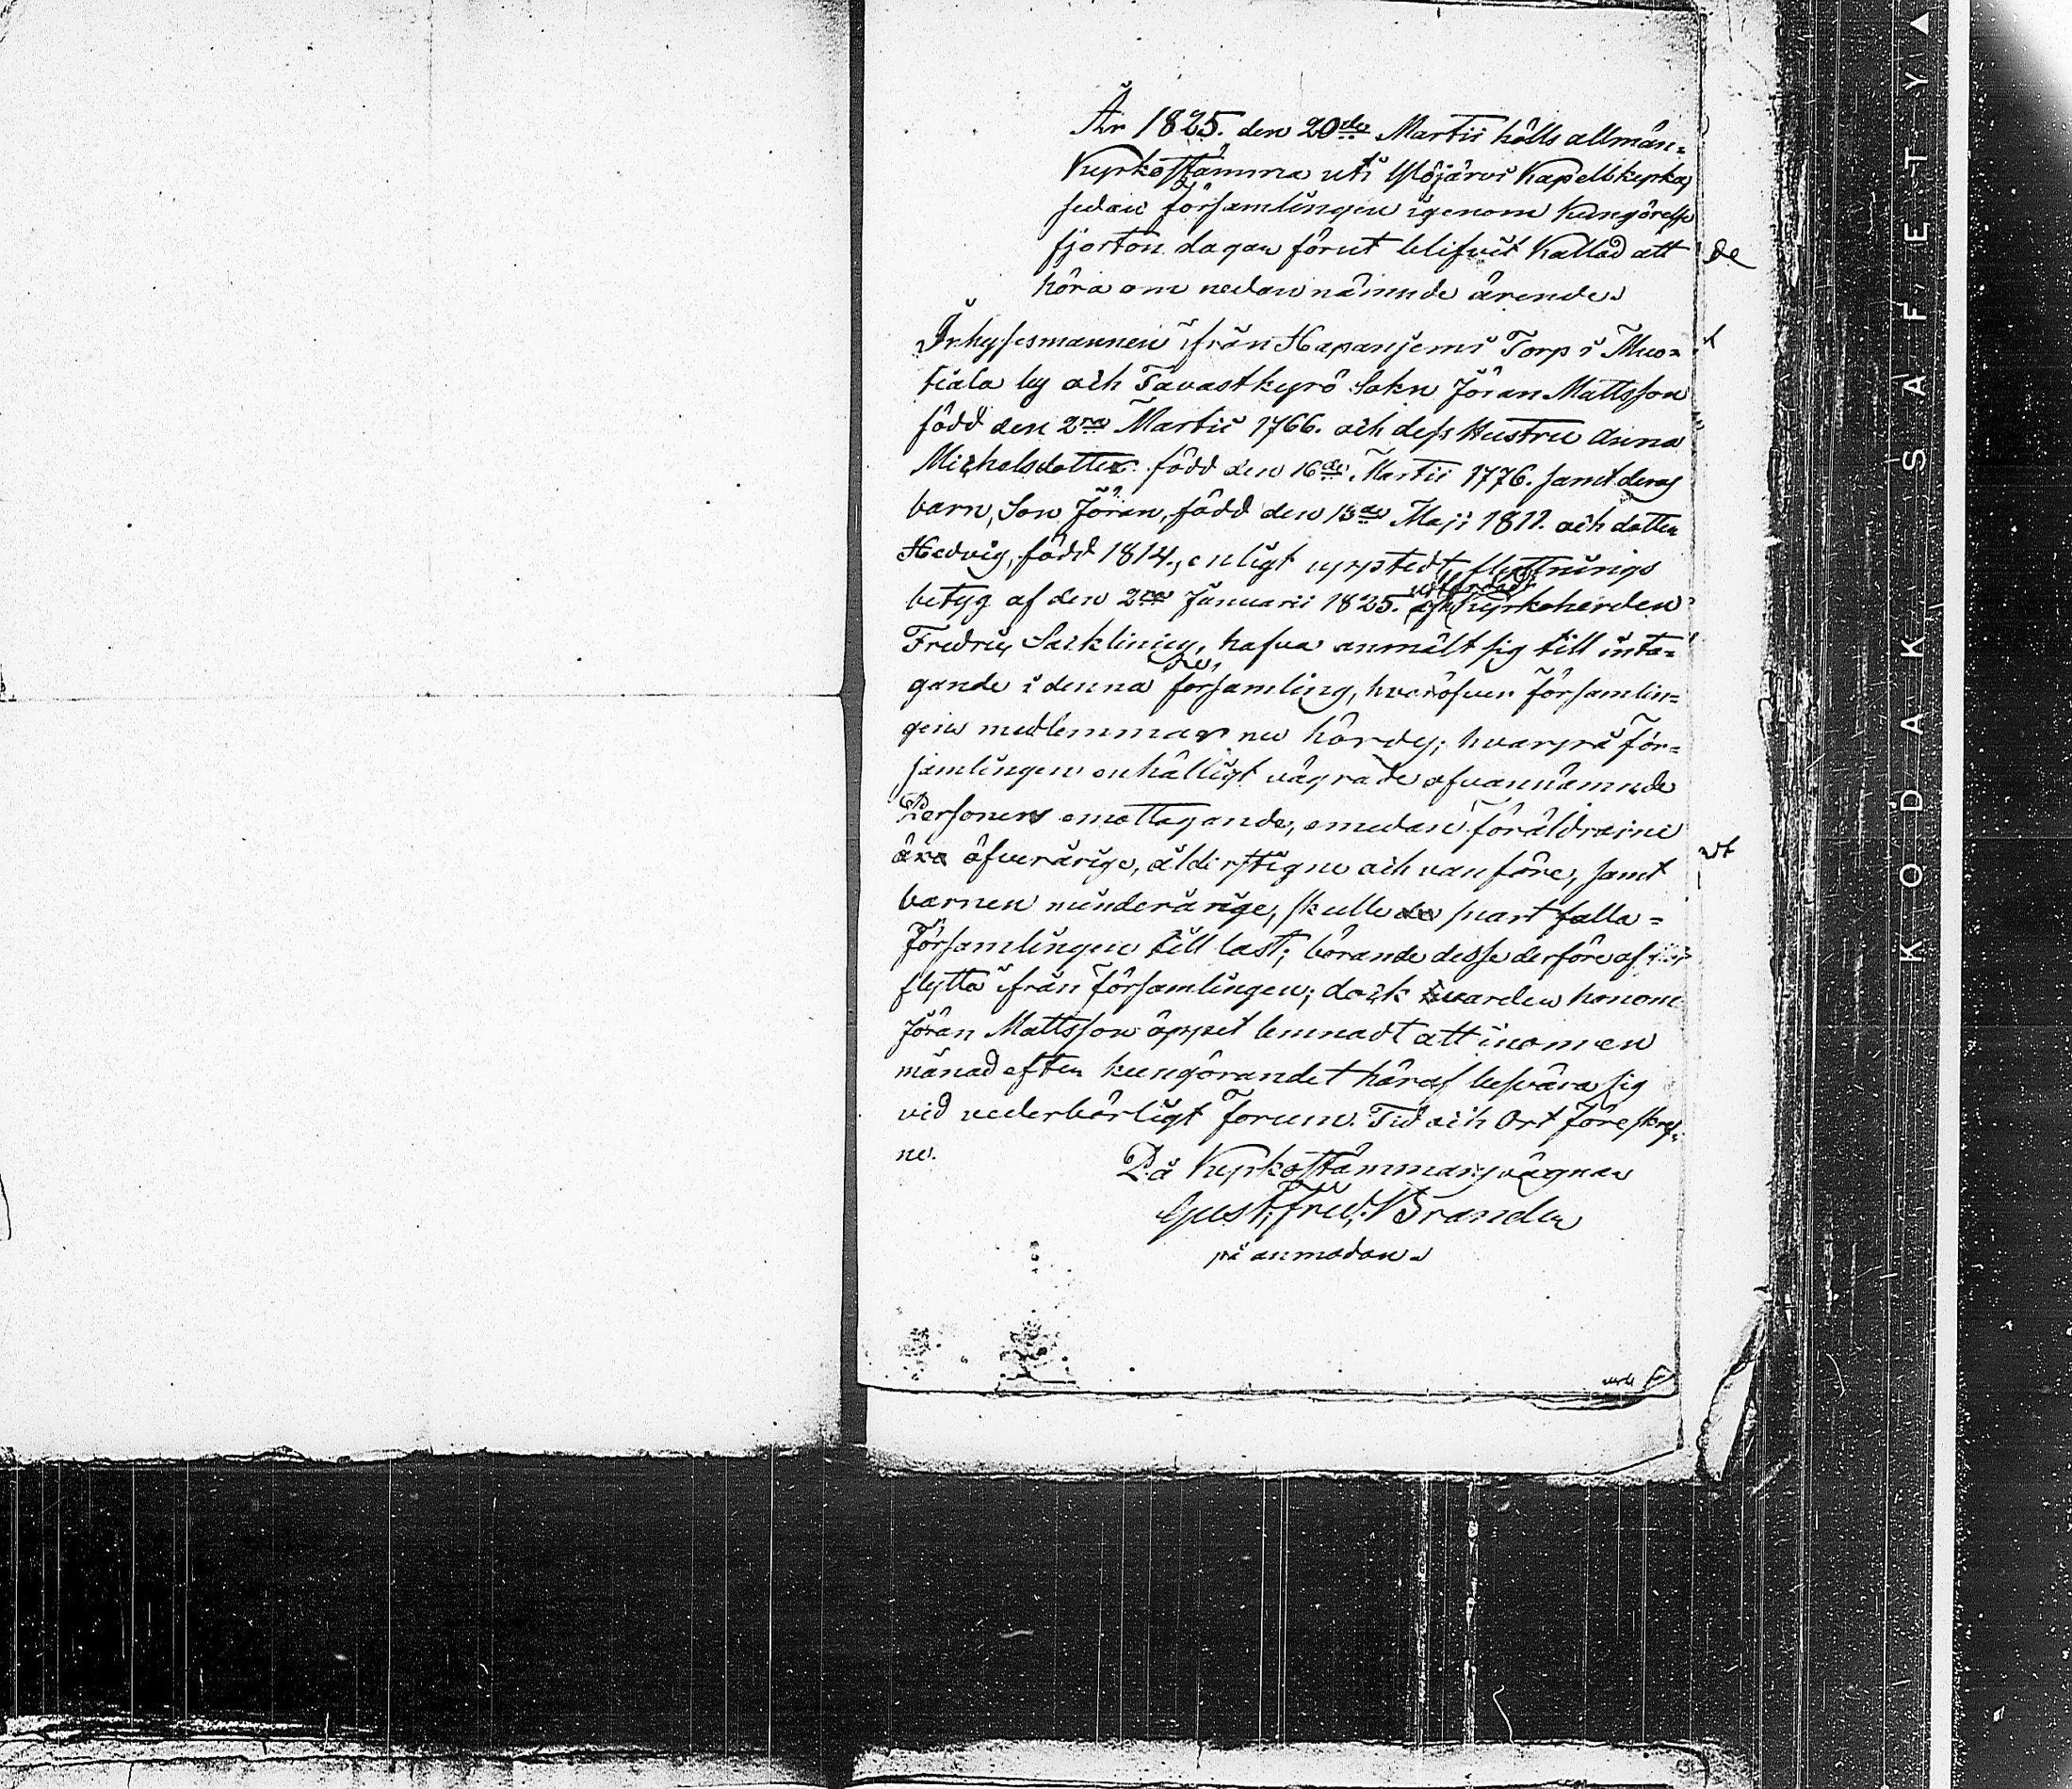 År 1825. den 20de Martii hölls allmän=
Kyrkostämma uti Ylöjärvi Kapellkyrka,
sedan församlingen igenom kungörelse
fjorton dagar förut blifvit kallad att
höra om nedannämnde ärende.
Inhysesmannen ifrån Hapanjemi Torp i Mus=
tiala by och Tavastkyrö Sokn Jöran Mattsson
född den 2ra Martii 1766. och dess Hustru Anna
Michelsdotter född den 16de Martii 1776. samt deras
barn, Son Jöran, född den 13de Maji 1811. och dotter
Hedvig, född 1814., enligt uppstedt flyttnings
betyg af den 2ra Januarii 1825. utfärdadt af Kyrkoherden
Fredric Sacklinius, hafva anmält sig till inta=
gande i denna församling, hvaröfver församlin=
gens medlemmar nu hördes; hvarpå för=
samlingen enhälligt vägrade ofvannämnde
Personers emottagande, emedan föräldrarne
äro öfverårige, ålderstigne och vanföre, samt
barnen minderårige, skulle de snart falla=
församlingen till last; börande desse derföre af
flytta ifrån församlingen; dock warder honom
Jöran Mattsson öppet lemnadt att inom en
månad efter kungörandet häraf besvära sig
vid vederbörligt forum. Tid och Ort föreskref=
ne.
På Kyrkostämmans vägnar
Gust. Fred. Brander
på anmodan.
de
KODAK SAFETY